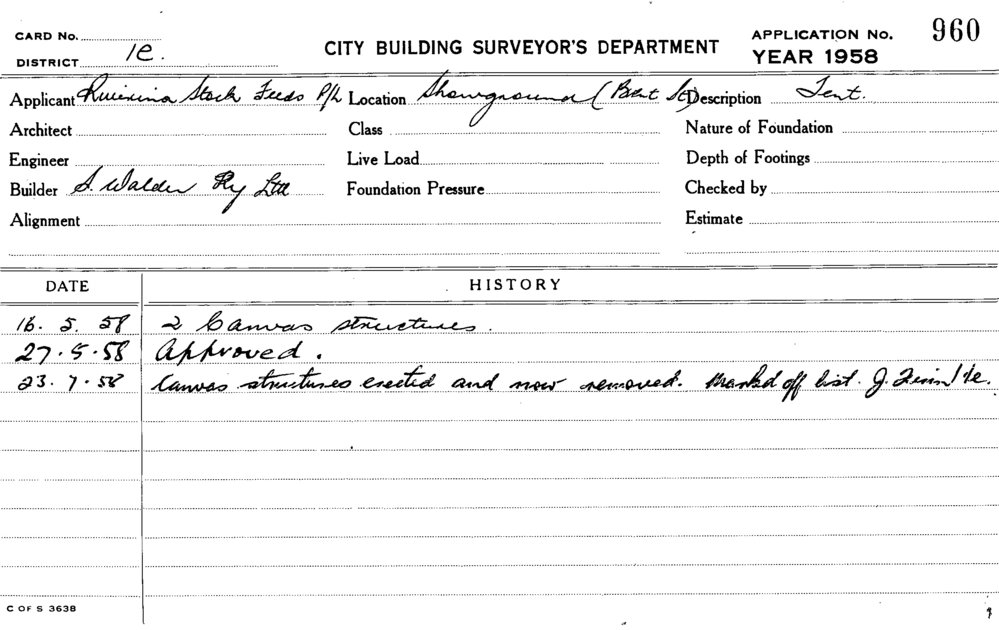 CARD No. APPLICATION No. 960
DISTRICT 1e. CITY BUILDING SURVEYOR'S DEPARTMENT YEAR 1958
Applicant Stock Feeds P/L Location Showground (Bent St) Description Tent.
Architect Class Nature of Foundation
Engineer Live Load Depth of Footings
Builder S. Walder Pty Ltd Foundation Pressure Checked by
Alignment Estimate
DATE HISTORY
16. 5. 58 2 Canvas structures.
27.5.58 Approved.
23.7.58 Canvas structures erected and now removed. Marked off list. J.
C OF S 3638